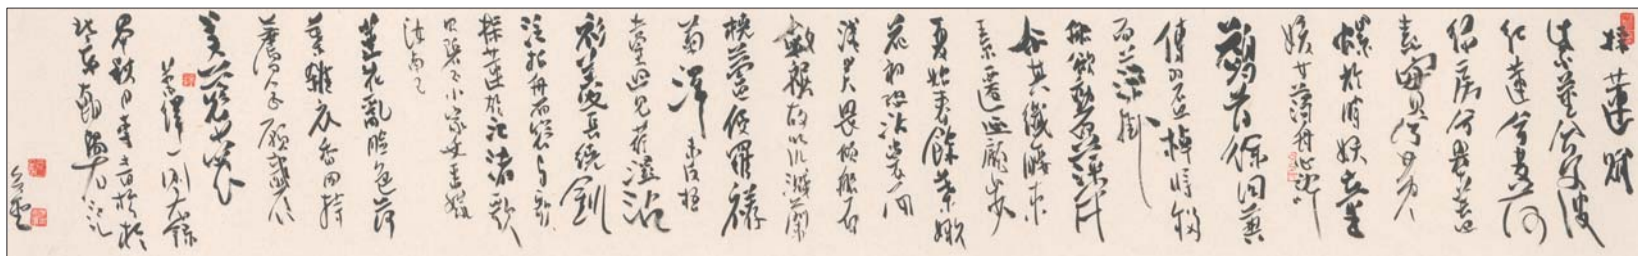 採蓮賦
紫莖兮文波
紅蓮兮芰荷
綠房兮翠蓋
素實兮黃
螺於時妖童
媛女蕩舟心許
鷁首徐回兼
傳羽杯棹將移
而藻掛
船欲動而萍開
爾其纖腰束
素遷延顧步
夏始春餘葉嫩
花初恐沾裳而
淺笑畏傾船而
斂裾故以水濺蘭
橈蘆侵羅襪
菊澤未反梧
臺迥見荇濕沾
衫菱長繞釧
泛柏舟而容與歌
採蓮於江渚歌
曰碧玉小家女來嫁
汝南王
蓮花亂臉色荷
葉雜衣香因持
薦君子願襲
芙蓉裳